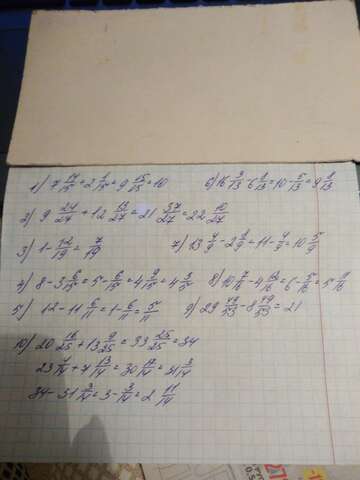 1) 7 14/15 = 2 1/15 = 9 15/15 = 10
6) 16 3/13 - 6 8/13 = 10 - 5/13 = 9 8/13
2) 9 24/27 + 12 13/27 = 21 37/27 = 22 10/27
3) 1 - 12/19 = 7/19
7) 13 4/9 - 2 8/9 = 11 - 4/9 = 10 5/9
4) 8 - 3 6/15 = 5 - 6/15 = 4 9/15 = 4 3/5
8) 10 7/16 - 4 /16 = 6 - 5/16 = 5 11/16
5) 12 - 11 6/11 = 1 - 6/11 = 5/11
9) 29 49/53 - 8 49/53 = 21
10) 20 16/25 + 13 9/25 = 33 25/25 = 34
23 /14 + 7 13/14 = 30 17/14 = 31 3/14
34 - 31 3/14 = 3 - 3/14 = 2 11/14